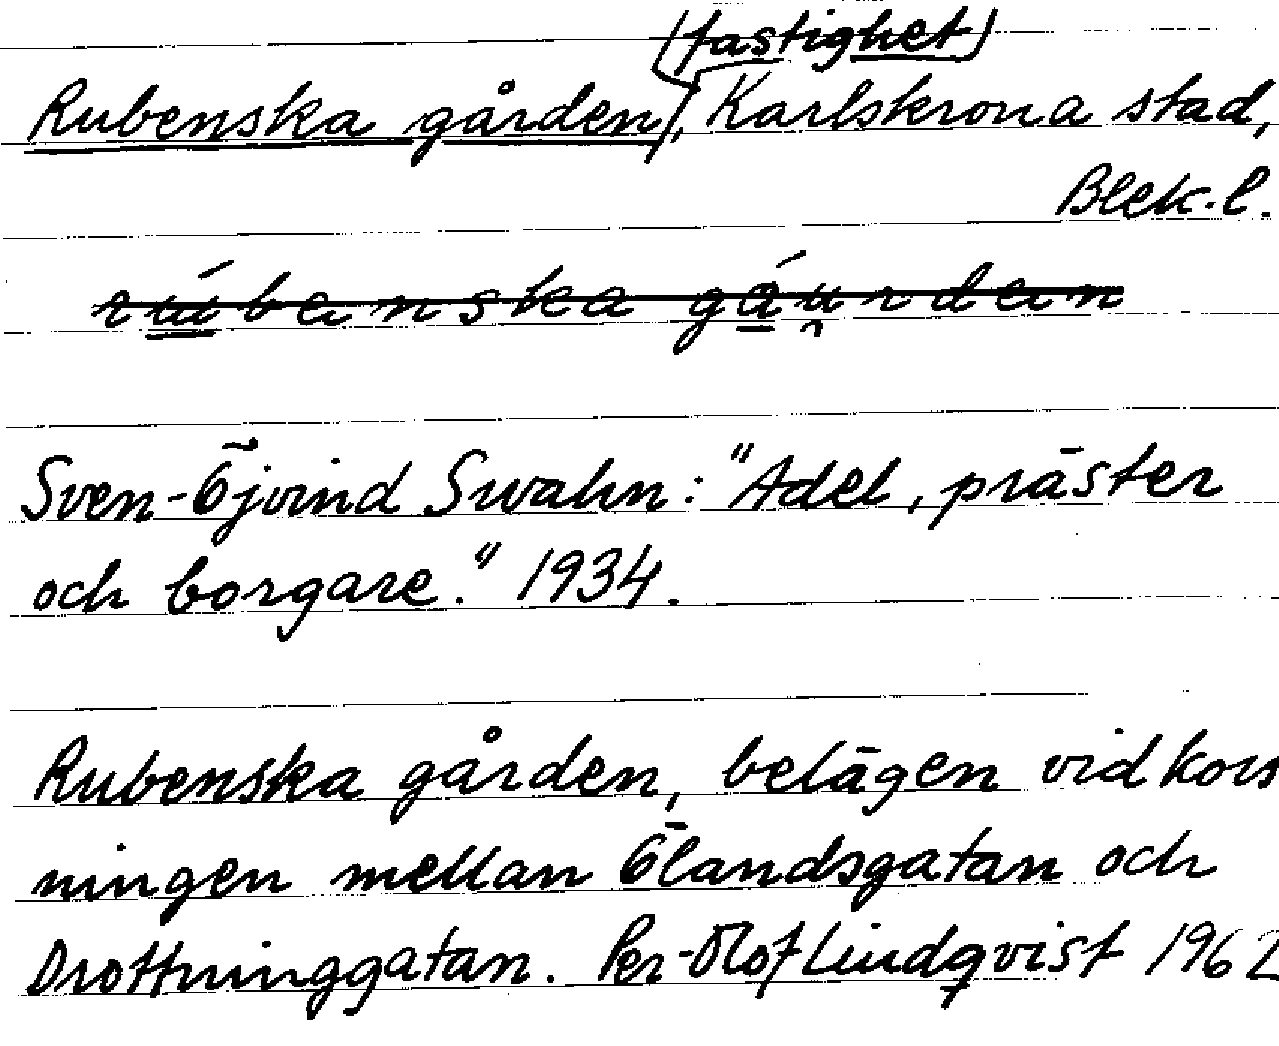 (fastighet)
Rubenska gården, Karlskrona stad,
Blek. l.
Sven-Öjvind Swahn: "Adel, präster
och borgare." 1934.
Rubenska gården, belägen vid kors
ningen mellan Ölandsgatan och
Drottninggatan. Per-Olof Lindqvist 1962